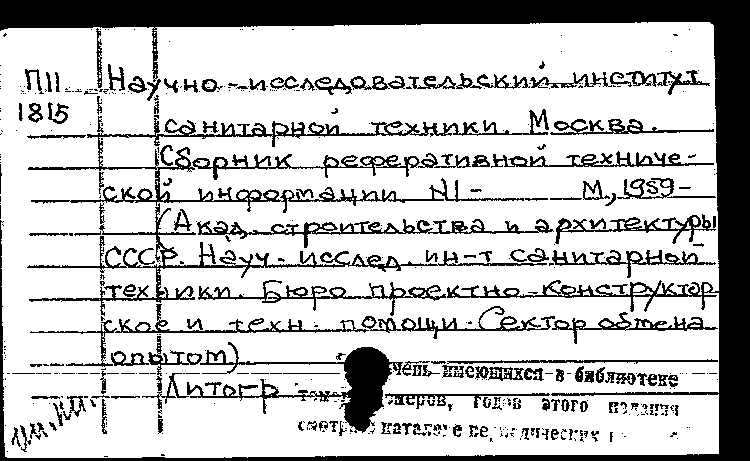 П11 Научно-исследовательский институт
1815
санитарной техники. Москва.
Сборник реферативной техниче-
ской информации. N1- М., 1959-
(Акад. строительства и архитектуры
СССР. Науч.-исслед. ин-т санитарной
техники. Бюро проектно-конструктор
ское и техн. помощи. Сектор обмена
опытом).
имеющихся в библиотеке
Литогр
номеров, годов этого издания
смотри в каталоге периодических